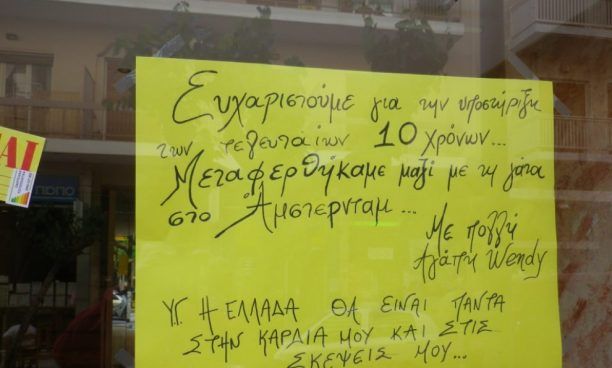 Ευχαριστούμε για την υποστήριξη
των τελευταίων 10 χρόνων...
Μεταφερθήκαμε μαζί με τη γάτα
στο Άμστερνταμ...
Με πολλή
Αγάπη Wendy
ΥΓ Η ΕΛΛΑΔΑ ΘΑ ΕΙΝΑΙ ΠΑΝΤΑ
ΣΤΗΝ ΚΑΡΔΙΑ ΜΟΥ ΚΑΙ ΣΤΙΣ
ΣΚΕΨΕΙΣ ΜΟΥ...
ΑΙ